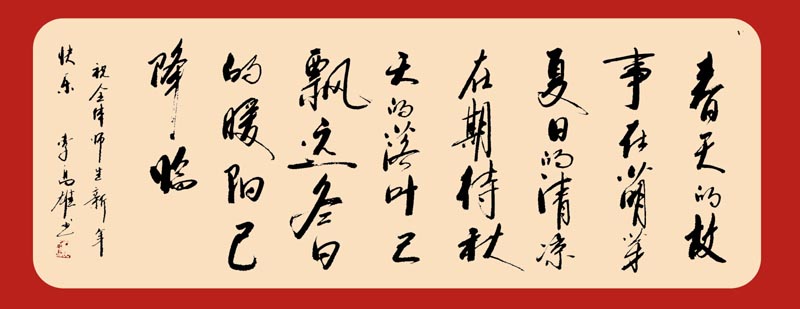 春天的故
事在萌芽
夏日的清凉
在期待秋
天的落叶已
飘远冬日
的暖阳已
降临
祝全体师生新年
快乐 李高雄书